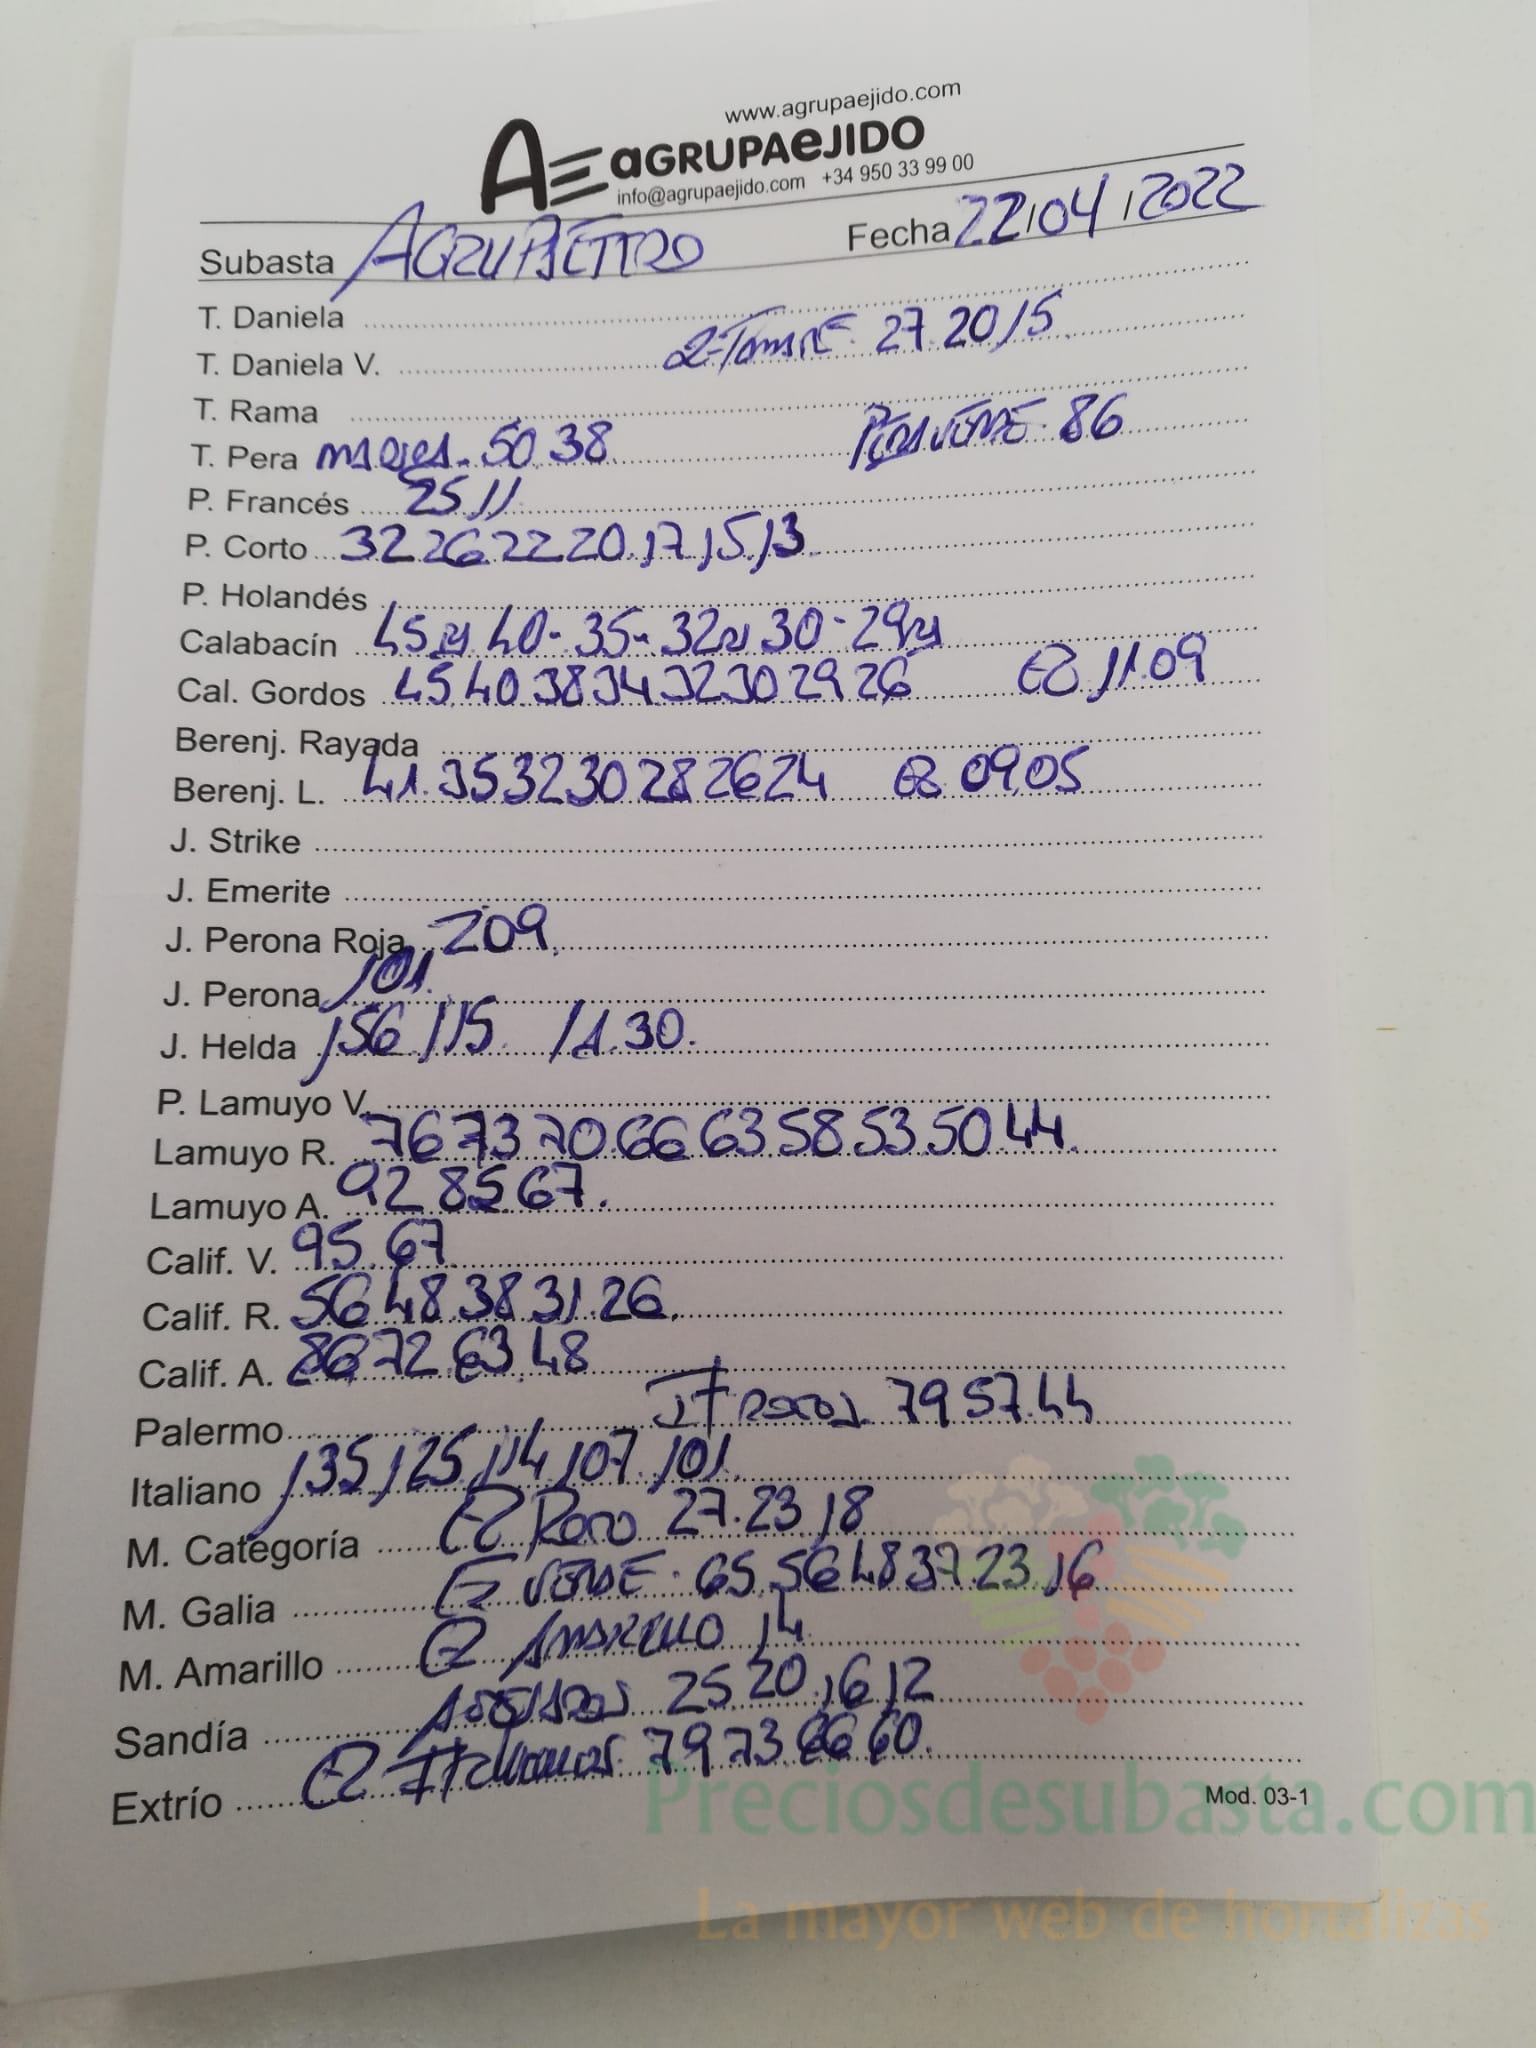 www.agrupaejido.com
AE aGRUPAeJIDO
info@agrupaejido.com +34 950 33 99 00
Subasta Fecha 22/04/2022
T. Daniela
T. Daniela V. 27 20 15
T. Rama
T. Pera 50 38 86
P. Francés 25 11
P. Corto 32 26 22 20 17 15 13
P. Holandés
Calabacín 45 40 - 35 - 32 30 - 29
Cal. Gordos 45 40 38 34 32 30 29 26 11 09
Berenj. Rayada
Berenj. L. 41. 35 32 30 28 26 24 09 05
J. Strike
J. Emerite
J. Perona Roja 209
J. Perona 101
J. Helda 156 115 11.30.
P. Lamuyo V.
Lamuyo R. 76 73 70 66 63 58 53 50 44.
Lamuyo A. 92 85 67.
Calif. V. 95 67
Calif. R. 56 48 38 31 26.
Calif. A. 86 72 63 48
Palermo 79 57 44
Italiano 135 125 114 107 101
M. Categoría Rojo 27. 23 18
M. Galia VERDE 65 56 48 37 23 16
M. Amarillo AMARILLO 14
Sandía 25 20 16 12
Extrío 79 73 66 60.
Mod. 03-1
Preciosdesubasta.com
La mayor web de hortalizas